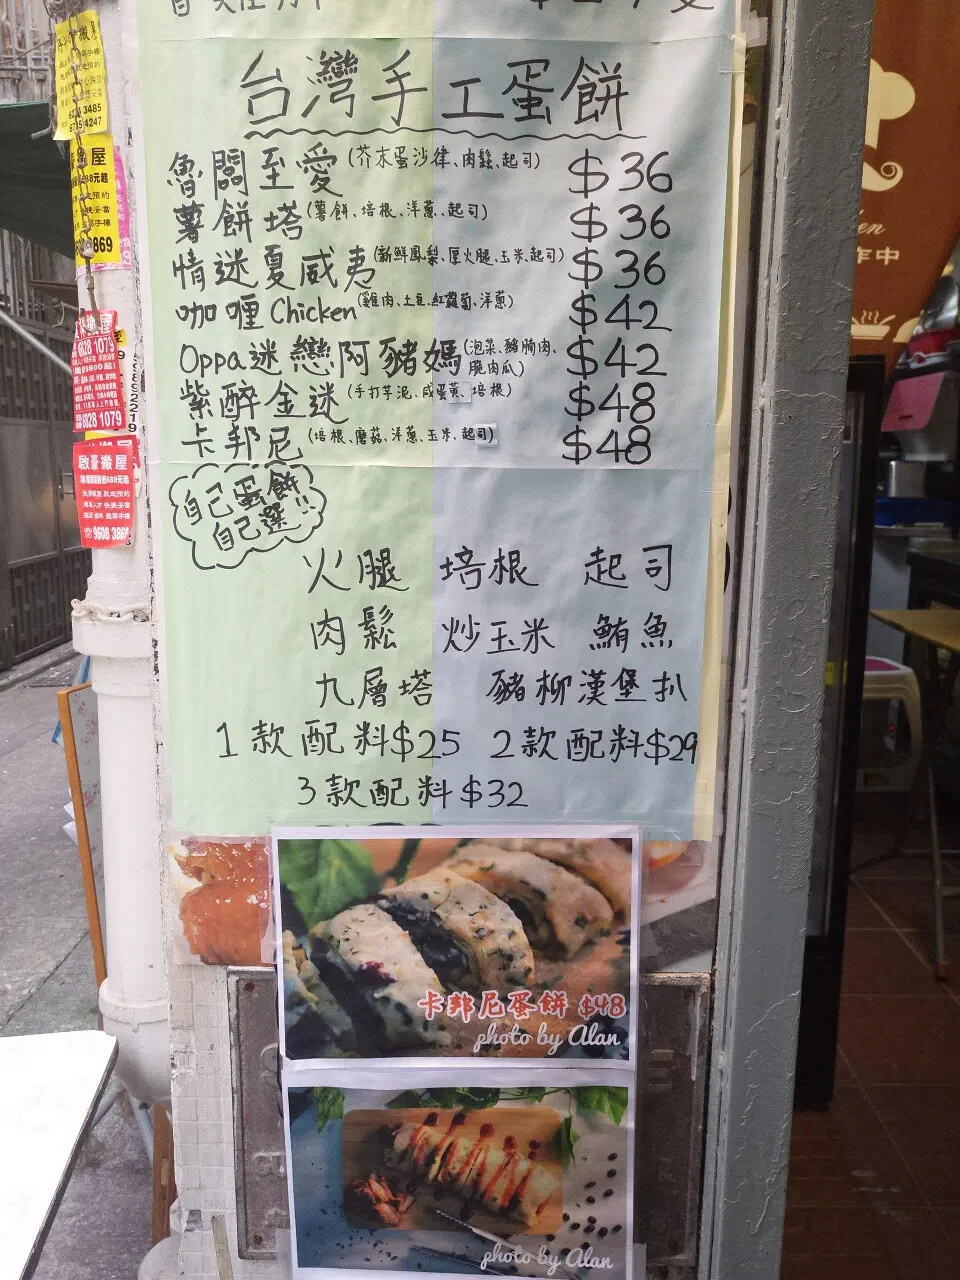 台灣手工蛋餅
魯闆至愛(芥末蛋沙律、肉鬆、起司) $36
薯餅塔(薯餅、培根、洋蔥、起司) $36
情迷夏威夷(新鮮鳳梨、厚火腿、玉米、起司) $36
咖喱Chicken(雞肉、土豆、紅蘿蔔、洋蔥) $42
Oppa迷戀阿豬媽(泡菜、豬腩肉、脆肉瓜) $42
紫醉金迷(手打芋泥、咸蛋黃、培根) $48
卡邦尼(培根、蘑菇、洋蔥、玉米、起司) $48
自己蛋餅
自己選!!
火腿 培根 起司
肉鬆 炒玉米 鮪魚
九層塔 豬柳漢堡扒
1款配料$25 2款配料$29
3款配料$32
卡邦尼蛋餅 $48
photo by Alan
photo by Alan
屋
869
6828 1079
6828 1079
啟豪搬屋
9608 386
作中